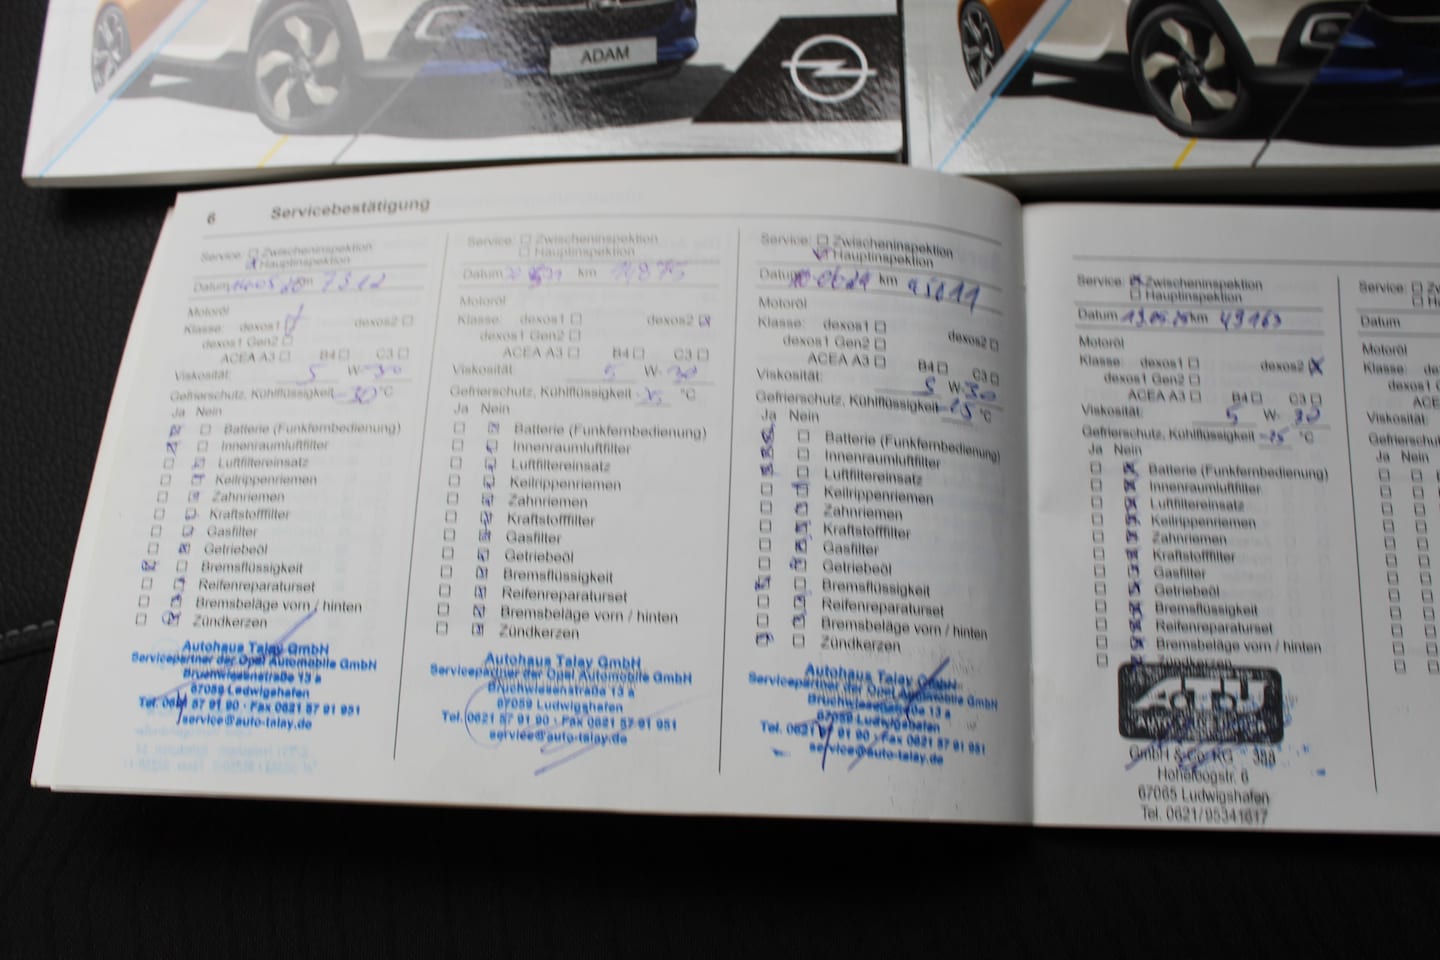 ADAM
6 Servicebestätigung
Service: Zwischeninspektion
Hauptinspektion
Datum km 7312
Motoröl
Klasse: dexos1 dexos2
dexos1 Gen2
ACEA A3 B4 C3
Viskosität: 5 W-30
Gefrierschutz, Kühlflüssigkeit -30 °C
Ja Nein
Batterie (Funkfernbedienung)
Innenraumluftfilter
Luftfiltereinsatz
Keilrippenriemen
Zahnriemen
Kraftstofffilter
Gasfilter
Getriebeöl
Bremsflüssigkeit
Reifenreparaturset
Bremsbeläge vorn / hinten
Zündkerzen
Autohaus Talay GmbH
Servicepartner der Opel Automobile GmbH
Bruchwiesenstraße 13 a
67059 Ludwigshafen
Tel. 0621 57 91 90 - Fax 0621 57 91 951
service@auto-talay.de
Service: Zwischeninspektion
Hauptinspektion
Datum km
Motoröl
Klasse: dexos1 dexos2
dexos1 Gen2
ACEA A3 B4 C3
Viskosität: 5 W-30
Gefrierschutz, Kühlflüssigkeit °C
Ja Nein
Batterie (Funkfernbedienung)
Innenraumluftfilter
Luftfiltereinsatz
Keilrippenriemen
Zahnriemen
Kraftstofffilter
Gasfilter
Getriebeöl
Bremsflüssigkeit
Reifenreparaturset
Bremsbeläge vorn / hinten
Zündkerzen
Autohaus Talay GmbH
Servicepartner der Opel Automobile GmbH
Bruchwiesenstraße 13 a
67059 Ludwigshafen
Tel. 0621 57 91 90 - Fax 0621 57 91 951
service@auto-talay.de
Service: Zwischeninspektion
Hauptinspektion
Datum km
Motoröl
Klasse: dexos1 dexos2
dexos1 Gen2
ACEA A3 B4 C3
Viskosität: 5 W-30
Gefrierschutz, Kühlflüssigkeit °C
Ja Nein
Batterie (Funkfernbedienung)
Innenraumluftfilter
Luftfiltereinsatz
Keilrippenriemen
Zahnriemen
Kraftstofffilter
Gasfilter
Getriebeöl
Bremsflüssigkeit
Reifenreparaturset
Bremsbeläge vorn / hinten
Zündkerzen
Autohaus Talay GmbH
Servicepartner der Opel Automobile GmbH
Bruchwiesenstraße 13 a
67059 Ludwigshafen
Tel. 0621 57 91 90 - Fax 0621 57 91 951
service@auto-talay.de
Service: Zwischeninspektion
Hauptinspektion
Datum km 49163
Motoröl
Klasse: dexos1 dexos2
dexos1 Gen2
ACEA A3 B4 C3
Viskosität: 5 W-30
Gefrierschutz, Kühlflüssigkeit °C
Ja Nein
Batterie (Funkfernbedienung)
Innenraumluftfilter
Luftfiltereinsatz
Keilrippenriemen
Zahnriemen
Kraftstofffilter
Gasfilter
Getriebeöl
Bremsflüssigkeit
Reifenreparaturset
Bremsbeläge vorn / hinten
Zündkerzen
ATU
GmbH & Co KG
Hoheloogstr. 6
67065 Ludwigshafen
Tel. 0621/95341617
Service:
Datum
Motoröl
Klasse:
Viskosität:
Ja Nein